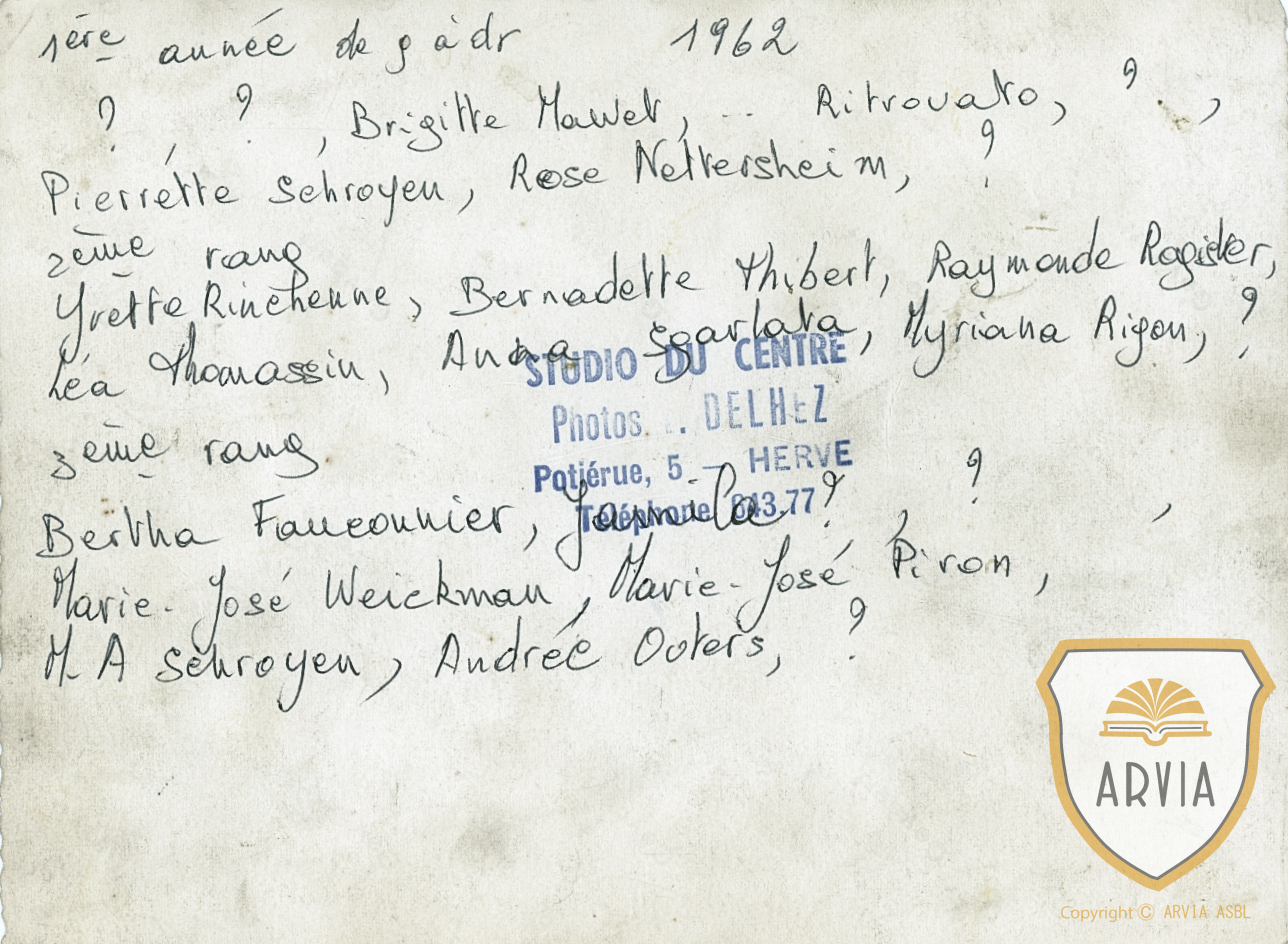 1ère année de g à dr 1962
? , ? , Brigitte Mawet, .. Ritrovato, ? ,
Pierrette Schroyen, Rose Nettersheim, ?
2ème rang
Yvette Rinchenne, Bernadette Thibert, Raymonde Rogister,
Léa Thomassin, Anna Sgarlata, Myriana Rigon, ?,
STUDIO DU CENTRE
Photos . DELHEZ
Potiérue, 5 — HERVE
Téléphone 643.77
3ème rang
Bertha Fauconnier, ?, ? ,
Marie-José Weickman, Marie-José Piron,
M.A Schroyen, Andrée Ooters, ?
ARVIA
Copyright © ARVIA ASBL